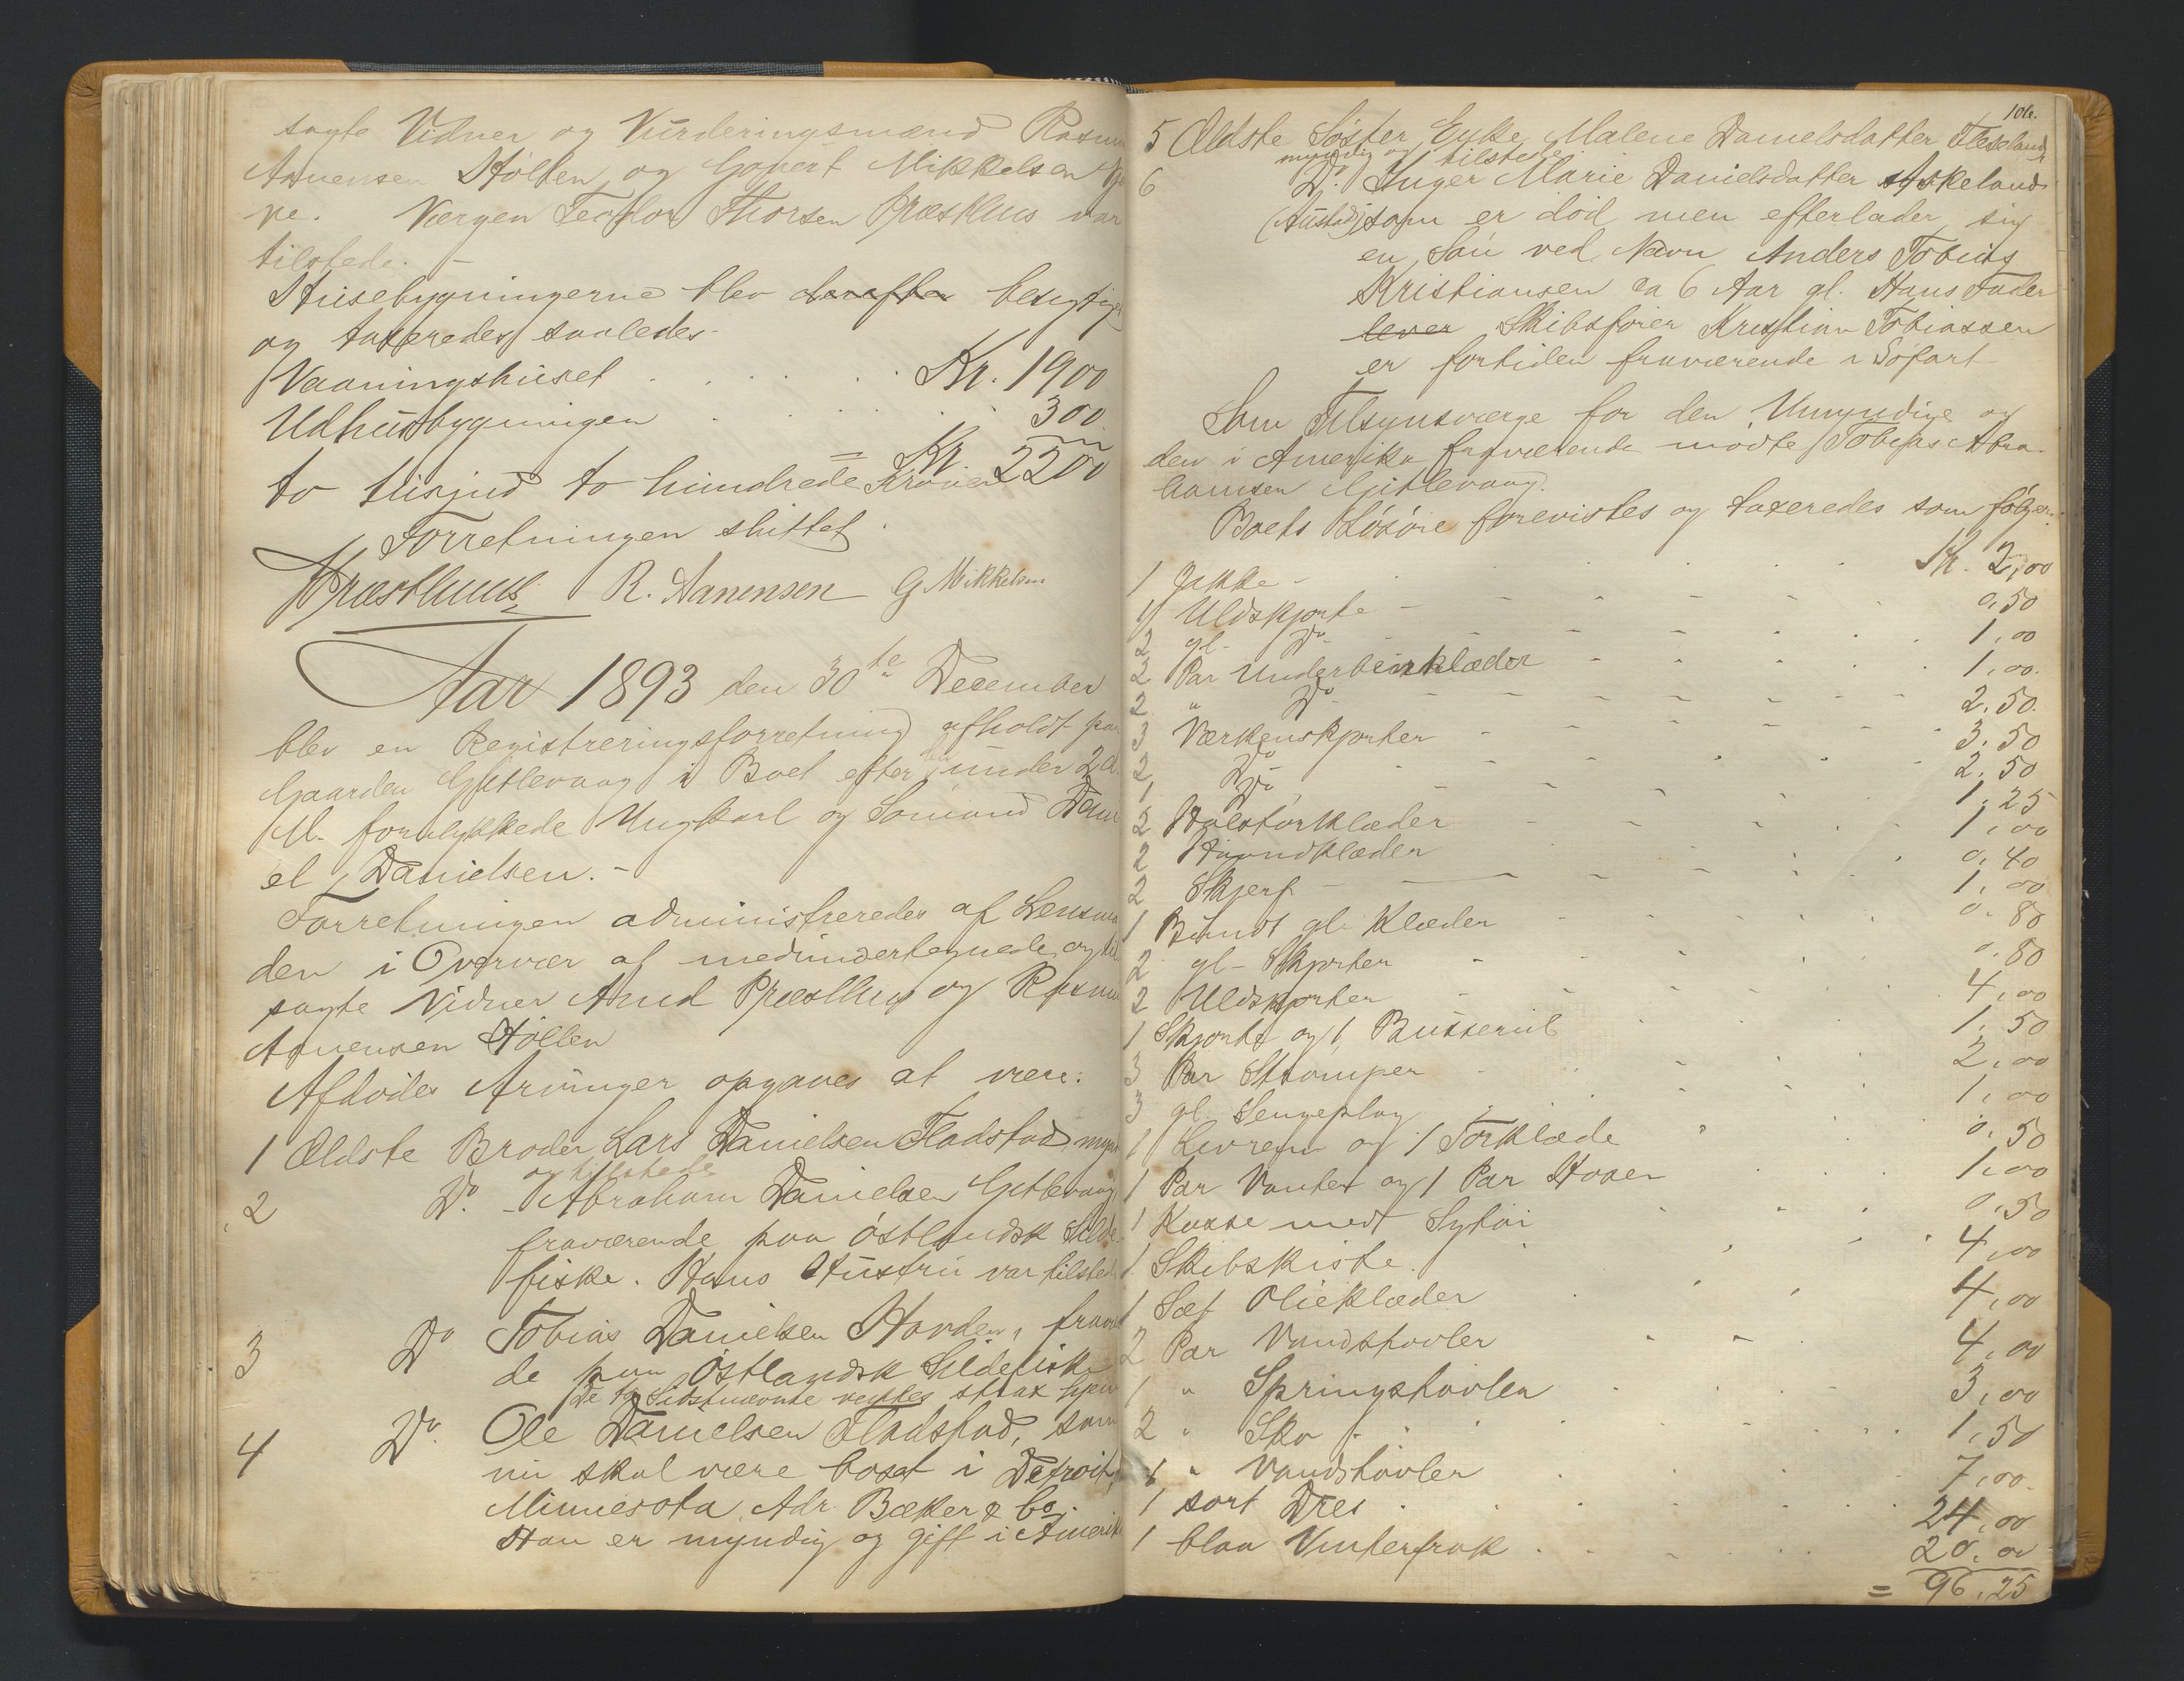 sagte Vidner og Vurderingsmænd Rasmu
Aanensen Hölten og Govert Mikkelsen
pe. Værgen Teodor Thorsen Præsthus var
tilstede. -
Husebygningerne blev derefter besigtiget
og taxeredes saaledes
Vaaningshuset . . . . . Kr. 1900
Udhusbygningen . . . . . 300.
= Kr. 2200
to tusind to hundrede Kroner
Forretningen sluttet.
Præsthuus R. Aanensen G Mikkelsen
Aar 1893 den 30te December
blev en Registreringsforretning afholdt paa
Gaarden Gitlevaag i Boet efter den under 2 d.
M. forulykkede Ungkarl og Sömand Dani
el Danielsen. -
Forretningen administreredes af Lensman
den i Overvær af medundertegnede og til
sagte Vidner Arnd Præsthus og Rasmu
Aanensen Höllen
Afdödes Arvinger opgaves at være:
1 Ældste Broder Lars Danielsen Fladstad mynd
og tilstede
2 Do. Abraham Danielsen Gitlevaag
fraværende paa östlandsk Silde
fiske. Hans Hustru var tilstede
3 Do Tobias Danielsen Havden, fravær
de paa östlandsk Sildefiske
De to Sidstnævnte ventes strax hjem
4 Do. Ole Danielsen Fladstad, som
nu skal være bosat i Detroit,
Minnesota Adr. Bæker & Co.
Han er myndig og gift i Amerika
106.
5 Ældste Söster Eyke Malene Danielsdatter Fleseland
myndig og tilstede
6 Do. Inger Marie Danielsdatter Askeland
(Austad) som er död men efterlader sig
en Sön ved Navn Anders Tobias
Kristiansen ca 6 Aar gl. Hans Fader
lever Skibsförer Kristian Tobiassen
er fortiden fraværende i Söfart
Som Tilsynsværge for den Umyndige og
den i Amerika fraværende mödte Tobias Abra-
hamsen Gitlevaag.
Boets Lösöre forevistes og taxeredes som fölger:
1 Jakke - . . . . Kr. 2,00
1 Uldskjorte - - - - 0,50
2 gl- Do. - - - - 1,00
2 Par Underbenklæder - - - 1,00.
2 " Do. - - - - 2,50.
3 Værkenskjorter - - - - 3,50
2 Do - - - - 2,50
1 Do - - - - 1,25
2 Halstörklæder - - - - 1,00
2 Haandklæder - - - 0,40
2 Skjerf - - - - 1,00
1 Bundt gl. Klæder - - - 0,80
2 gl- Skjorter - - - 0,80
2 Uldskjorter - - - 4,00
1 Skjorte og 1 Busserul - - 1,50
3 Par Strömper - - - 2,00
3 gl. Sengeplag - - - 1,00
1 Livrem og 1 Törklæde - - 0,50
1 Par Vanter og 1 Par Hoser - - 1,00
1 Kasse med Sytöi - - - 0,50
1 Skibskiste. - - - 4,00
1 Sæt Olieklæder - - 4,00
2 Par Vandstövler - - 4,00
1 " Springstövler - - - 3,00
2 " Sko - - - 1,50
1 " Vandstövler - - - 7,00.
1 sort Dres - - - 24,00
1 blaa Vinterfrak - - - 20,00
= 96,25